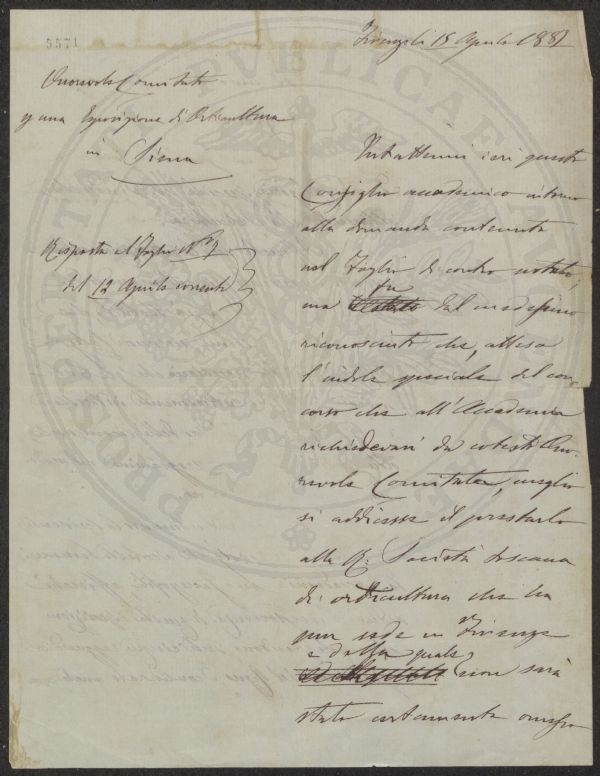 5571
Firenze li 18 Aprile 1887
Onorevole Comitato
p una Esposizione di Orticultura
in Siena
Risposta al Foglio N° 7
del 12 Aprile corrente
Intrattenni ieri questo
Consiglio accademico intorno
alla domanda contenuta
nel Foglio di contro notato,
ma fu dal medesimo
riconosciuto che, attesa
l'indole speciale del con-
corso che all'Accademia
richiedevasi da cotesto Ono-
revole Comitato, meglio
si addicesse il prestarlo
alla R. Società toscana
di orticultura che ha
pur sede in Firenze
e dalla quale,
non sarà
stato certamente omesso
PROSPERITATI PUBLICAE